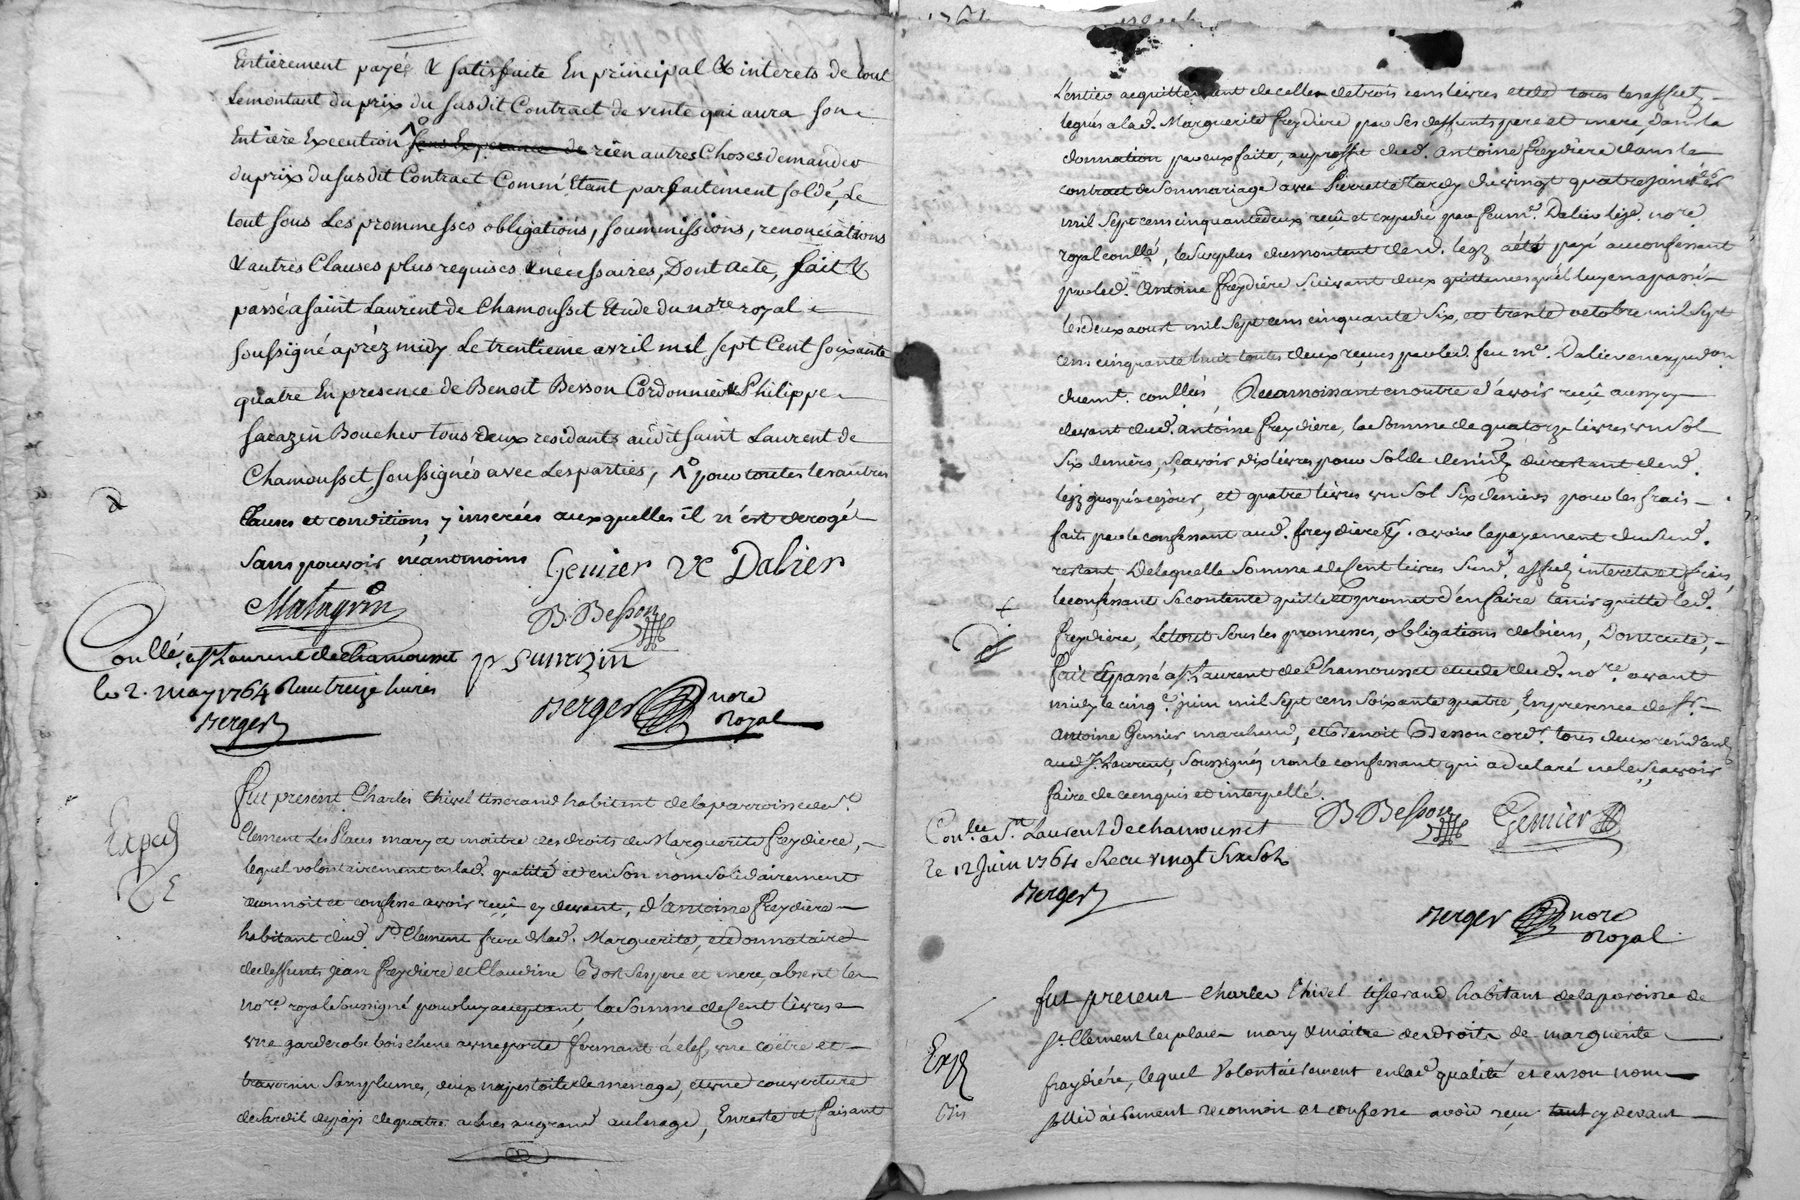 Entièrement payée & satisfaite En principal & interets de tout
Lemontant du prix du susdit Contract de vente qui aura son
Entière Execution sans Esperance de rien autres Choses demander
du prix du susdit Contract Comm'Etant parfaitement soldé, Le
tout sous Les prommesses obligations, soummissions, renonciations
& autres Clauses plus requises & necessaires, Dont acte, fait &
passé a saint Laurent de Chamousset Etude du no.re royal
soussigné aprèz midy Le trentieme avril mil sept Cent soixante
quatre En presence de Benoit Besson Cordonnier & Philippe
sarazin Boucher tous deux residants audit saint Laurent de
Chamousset soussignés avec Les parties, pour toutes les autres
Clauses et conditions y inserées auxquelles il n'est derogé
sans pouvoir néantmoins Genier ve Dalier
Matagrin B. Besson
Conllé a st Laurent de Chamousset p sarazin
le 2. may 1764 Recu treize livres
Berger Berger nore Royal
fut present Charles Chivel tisserand habitant de la parroisse de st
Clement Les Places mary et maitre des droits de Marguerite freydiere,
lequel volontairement en lad. qualité et en son nom solidairement
reconnoit et confesse avoir reçu cy devant, d'antoine freydiere
habitant dud. st Clement frere de lad. Marguerite, et donnataire
de deffunts jean freydiere et Claudine ses pere et mere, absent le
no.re royal soussigné pour luy acceptant, la somme de Cent livres
une garderobe bois chene a une porte fermant à clef, une coëtre et
traversin sans plumes, deux napes toile de menage, et une couverture
de pays de quatre aulnes au grand aulnage, En reste et faisant
Exped
L'entier acquittement de celle de trois cens livres et de tous les effets
legués a lad. Marguerite freydière par ses deffunts pere et mere, dans la
donnation par eux faite, au proffit dud. Antoine freydiere dans le
contract de son mariage avec Pierrette tardy du vingt quatre janvier
mil sept cens cinquante deux reçû et expedié par feu me. Dalier no.re
royal conllé, le surplus du montant dud. legz a été payé au confessant
par led. Antoine freydière suivant deux quittances qu'il luy en a passé
les deux aoust mil sept cens cinquante six, et trente octobre mil sept
cens cinquante huit toutes deux reçues par led. feu me. Dalier
duemt. conllés, Reconnoissant en outre d'avoir reçû aussy cy
devant dud. antoine freydiere, la somme de quatorze livres un sol
six deniers, sçavoir dix livres pour solde du restant dud.
legz jusqu'a ce jour, et quatre livres un sol six deniers pour les frais
faits par le confessant aud. freydiere pr. avoir le payement dud.
restant, De laquelle somme de Cent livres susd. effets interets et frais,
le confessant se contente quitte et promet d'en faire tenir quitte led.
freydière, Le tout sous les promesses, obligations de biens, Dont acte,
fait et passé a st Laurent de Chamousset etude dud. no.re avant
midy le cinq.e juin mil sept cens soixante quatre, En presence de sr.
Antoine Genier marchand, et Benoit Besson cordr. tous deux residants
aud st. Laurent, soussignés non le confessant qui a declaré ne le sçavoir
faire de ce enquis et interpellé.
B Besson Genier
Con.lée a st Laurent de chamousset
le 12 Juin 1764 Recu vingt six sols
Berger
Berger nore Royal
fut present Charles Chivel tisserand habitant de la paroisse de
st. Clement les places mary & maitre des droits de marguerite
freydiére, lequel volontairement en lad qualité et en son nom
sollidairement reconnoit et confesse avoir reçu tant cy devant
Exp